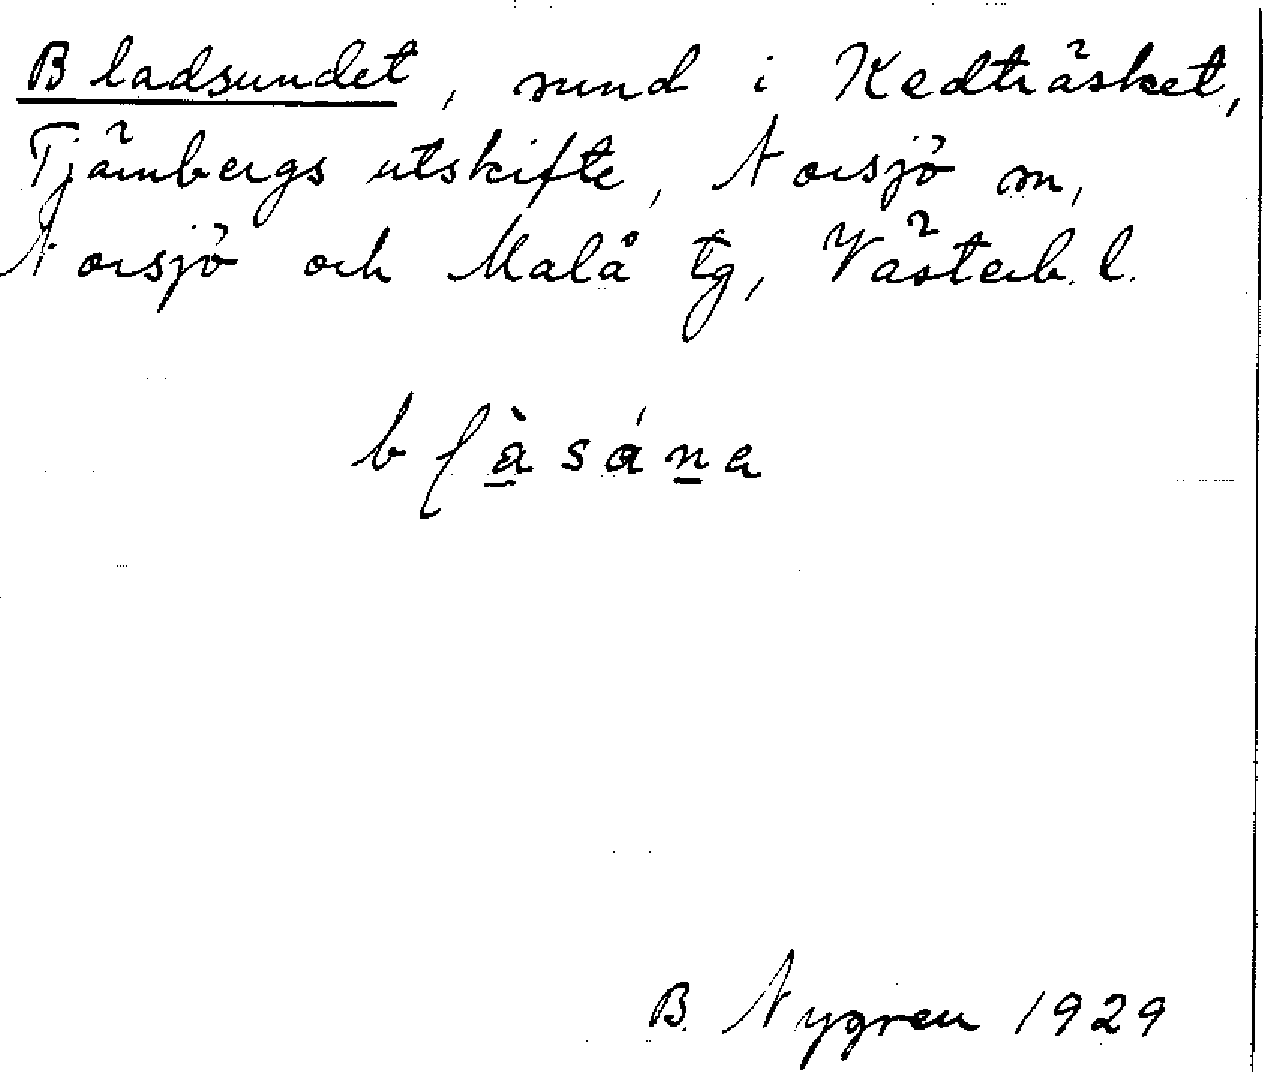 Bladsundet, sund i Kedträsket,
Tjämbergs utskifte, Norsjö m,
Norsjö och Malå tg, Västerb. l.
bḷà̱sán̲a
B. Nygren 1929